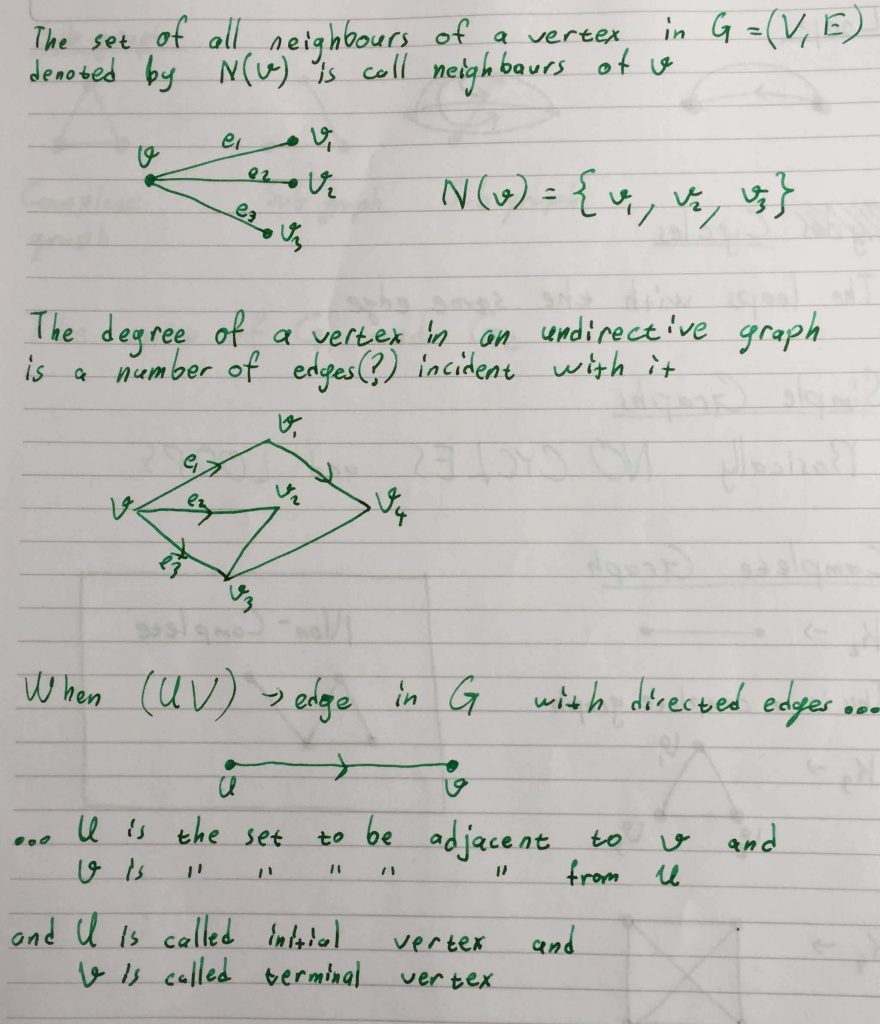 The set of all neighbours of a vertex in G = (V, E)
denoted by N(v) is call neighbaurs of v
v e1 v1
e2 v2
e3 v3
N(v) = { v1, v2, v3}
The degree of a vertex in an undirective graph
is a number of edges(?) incident with it
v1
e1
v e2 v2 v4
e3
v3
When (UV) → edge in G with directed edges...
u v
... U is the set to be adjacent to v and
v is " " " " " from U
and U is called initial vertex and
v is called terminal vertex